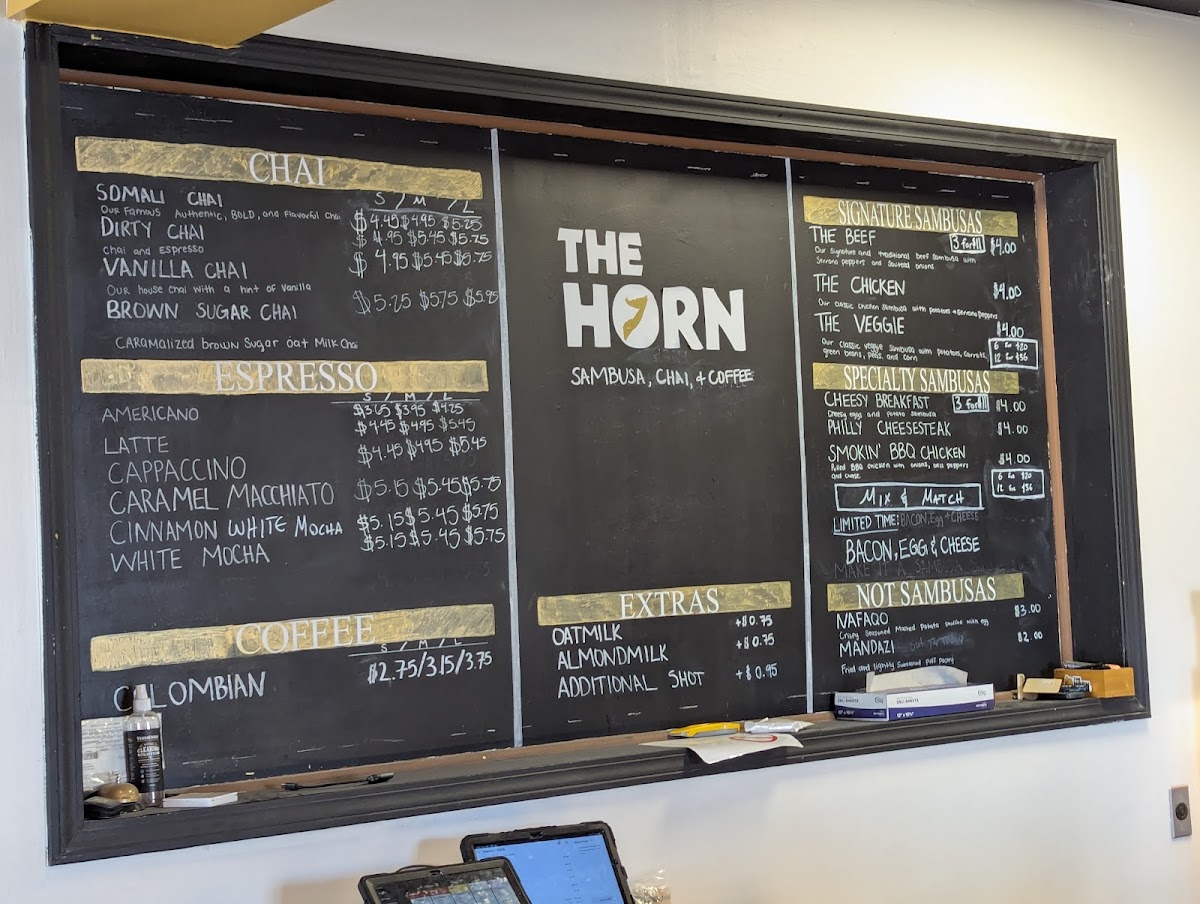 CHAI
S / M / L
SOMALI CHAI $4.45 $4.95 $5.25
Our Famous Authentic, BOLD, and Flavorful Chai
DIRTY CHAI $4.95 $5.45 $5.75
chai and Espresso
VANILLA CHAI $4.95 $5.45 $5.75
Our house chai with a hint of Vanilla
BROWN SUGAR CHAI $5.25 $5.75 $5.95
CARAMALIZED brown Sugar Oat Milk Chai
ESPRESSO
S / M / L
AMERICANO $3.65 $3.95 $4.25
LATTE $4.45 $4.95 $5.45
CAPPACCINO $4.45 $4.95 $5.45
CARAMEL MACCHIATO $5.15 $5.45 $5.75
CINNAMON WHITE MOCHA $5.15 $5.45 $5.75
WHITE MOCHA $5.15 $5.45 $5.75
COFFEE
S / M / L
COLOMBIAN $2.75/3.15/3.75
THE
HORN
SAMBUSA, CHAI, + COFFEE
EXTRAS
OATMILK +$0.75
ALMONDMILK +$0.75
ADDITIONAL SHOT +$0.95
SIGNATURE SAMBUSAS
THE BEEF 3 for 11 $4.00
Our signature and traditional beef sambusa with
Serrano peppers and sauteed onions
THE CHICKEN $4.00
Our classic chicken sambusa with potatoes + serrano peppers
THE VEGGIE $4.00
Our classic veggie sambusa with potatoes, carrots,
green beans, peas, and corn
6 for $20
12 for $36
SPECIALTY SAMBUSAS
CHEESY BREAKFAST 3 for 11 $4.00
Cheesy eggs and potato sambusa
PHILLY CHEESESTEAK $4.00
SMOKIN' BBQ CHICKEN $4.00
Pulled BBQ chicken with onions, bell peppers
and cheese
6 for $20
12 for $36
MIX & MATCH
LIMITED TIME: BACON, Egg + CHEESE
BACON, EGG & CHEESE
MAKE IT A SAMBUSA
NOT SAMBUSAS
NAFAQO $3.00
Crispy seasoned mashed potato stuffed with egg
MANDAZI $2.00
Fried and lightly sweetened puff pastry